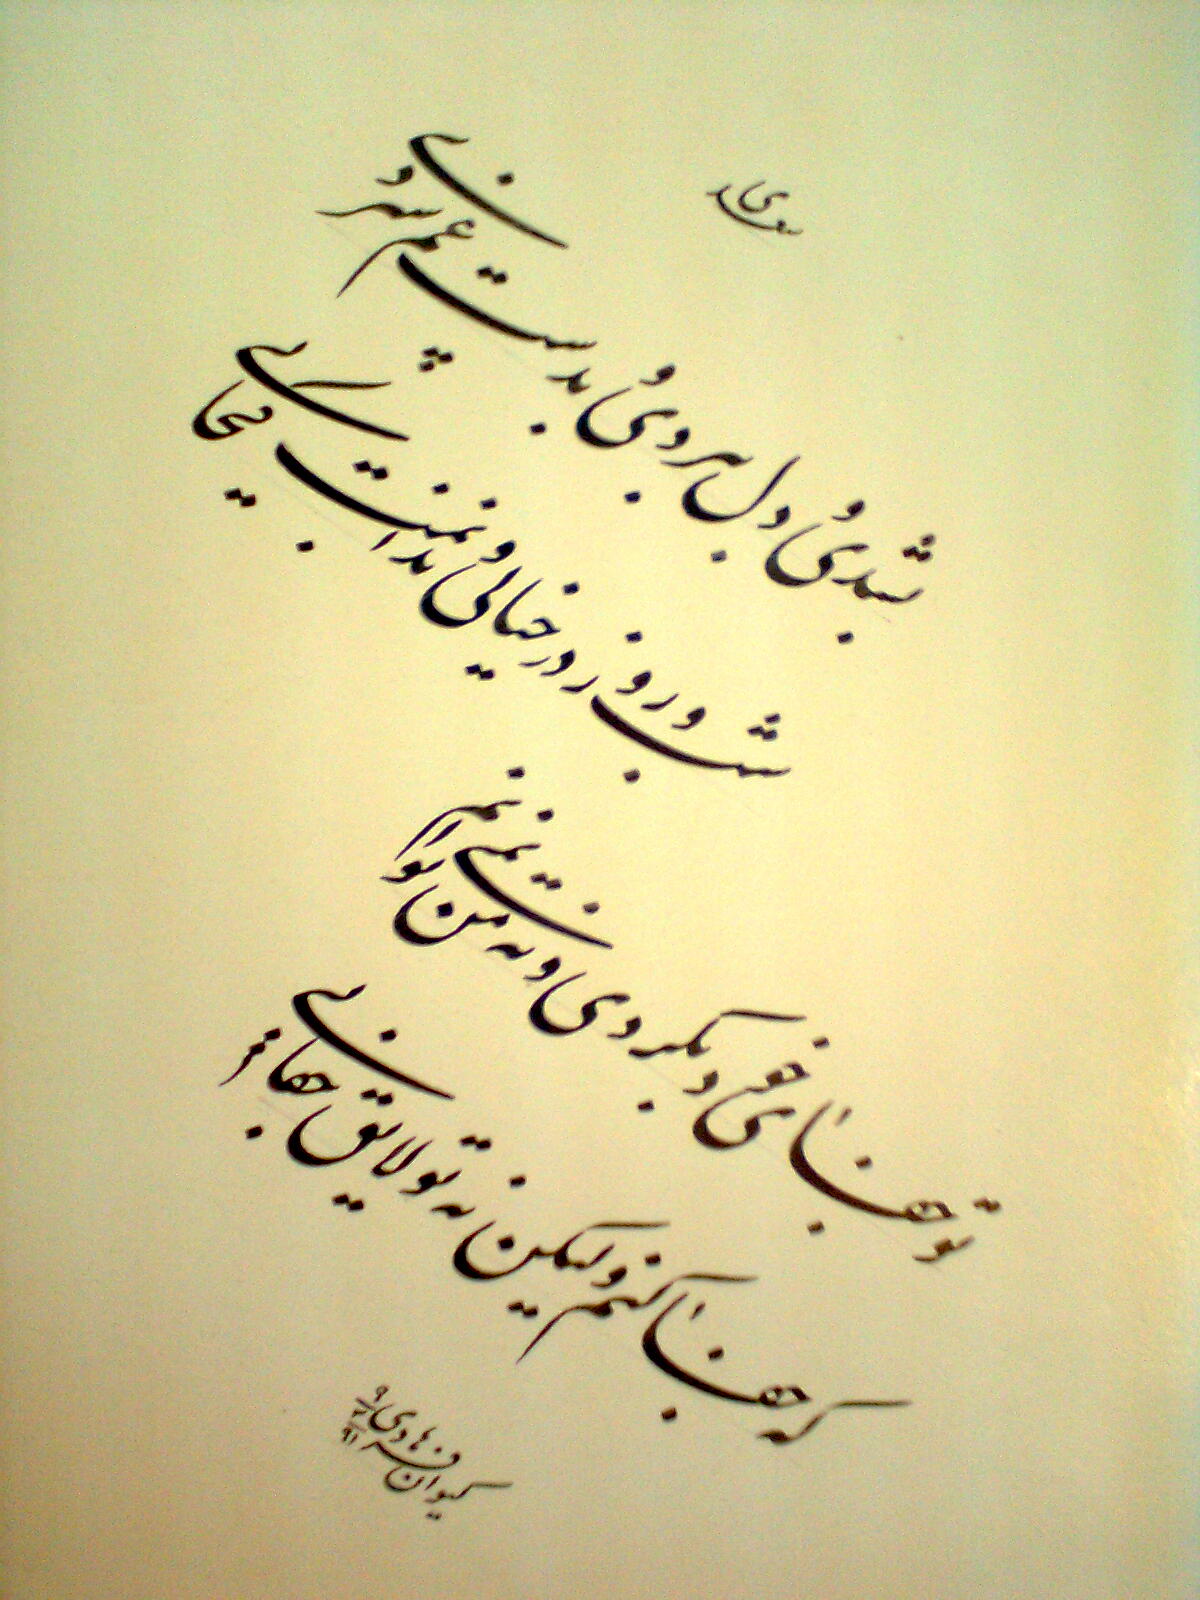 سعدی
بشدی و دل ببردی و بدست غم سپردی
شب و روز در خیالی و ندانمت کجایی
تو جفای خود بکردی و نه من نمی توانم
که جفا کنم ولیکن نه تو لایق جفایی
کیوان فرهادی